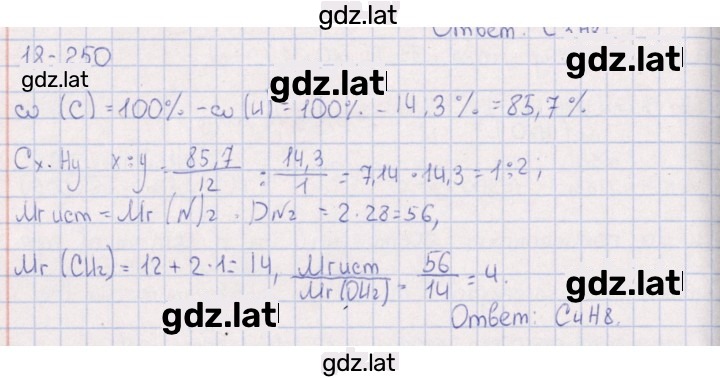 gdz.lat
Ответ.
12-250
gdz.lat
gdz.lat
gdz.lat
ω (C) = 100% - ω (H) = 100% - 14,3% = 85,7%
Cx.Hy x:y = 85,7/12 : 14,3/1 = 7,14 : 14,3 = 1:2;
Mr ист = Mr (N)2 . DN2 = 2·28=56,
Mr (CH2) = 12 + 2·1= 14, Mr ист/Mr(CH2) = 56/14 = 4.
gdz.lat
gdz.lat
Ответ: C4H8.
gdz.lat